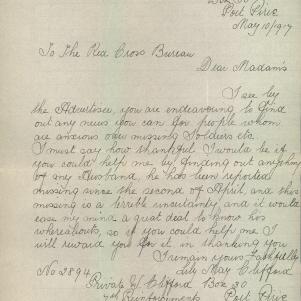 Box 30
Port Pirie
May 10/1917
To The Red Cross Bureau
Dear Madam's
I see by
the Advertiser, you are endeavouring to find
out any news you can for people whom
are anxious over missing Soldiers etc.
I must say how thankful I would be if
you could help me by finding out anything
of my Husband, he has been reported
missing since the second of April, and this
missing is a terrible uncertainty and it would
ease my mind a great deal to know his
whereabouts, so if you could help me I
will reward you for it in thanking you
I remain yours Faithfully
Lily May Clifford
No 2894 Box 30
Private W Clifford Port Pirie
7th Reinforcements